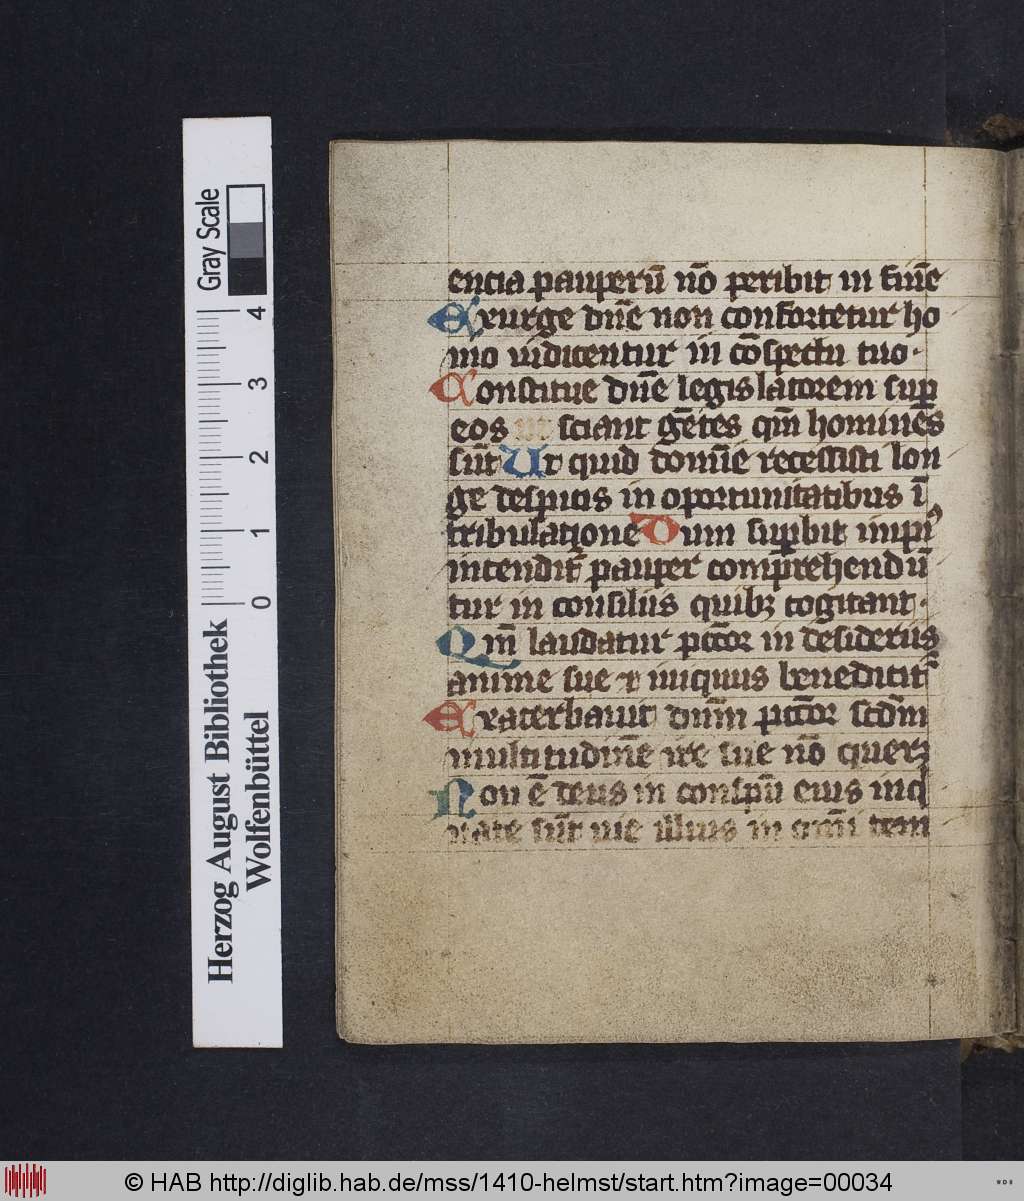 encia pauperū nō peribit in finē
Exurge dn̄e non confortetur ho
mo iudicentur in cōspectu tuo·
Constitue dn̄e legislatorem sup̄
eos ut sciant gētes qm̄ hominēs
sūt Ut quid domīe recessisti lon
ge despicis in oportunitatibus ī
tribulatione Dum sup̄bit impi⁹
incendit᷑ pauper comp̄rehendū
tur in consiliis quibꝫ cogitant·
Qm̄ laudatur pctōr in desideriis
anime sue ⁊ iniquus benedicit᷑
Exacerbauit dnm̄ pctōr scd̄m
multitudinē ire sue nō queret
Non ē deus in conspū eius inq
nate sūt uie illius in om̄i tem
Herzog August Bibliothek
Wolfenbüttel
Gray Scale
0 1 2 3 4
© HAB http://diglib.hab.de/mss/1410-helmst/start.htm?image=00034